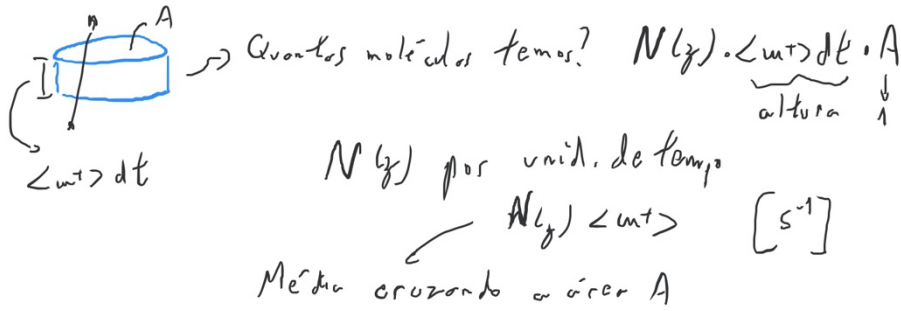 A
A
Quantas moléculas temos? N(z) · <w+> dt · A
altura 1
<w+> dt
N(z) por unid. de tempo
N(z) <w+> [s⁻¹]
Média cruzando a área A